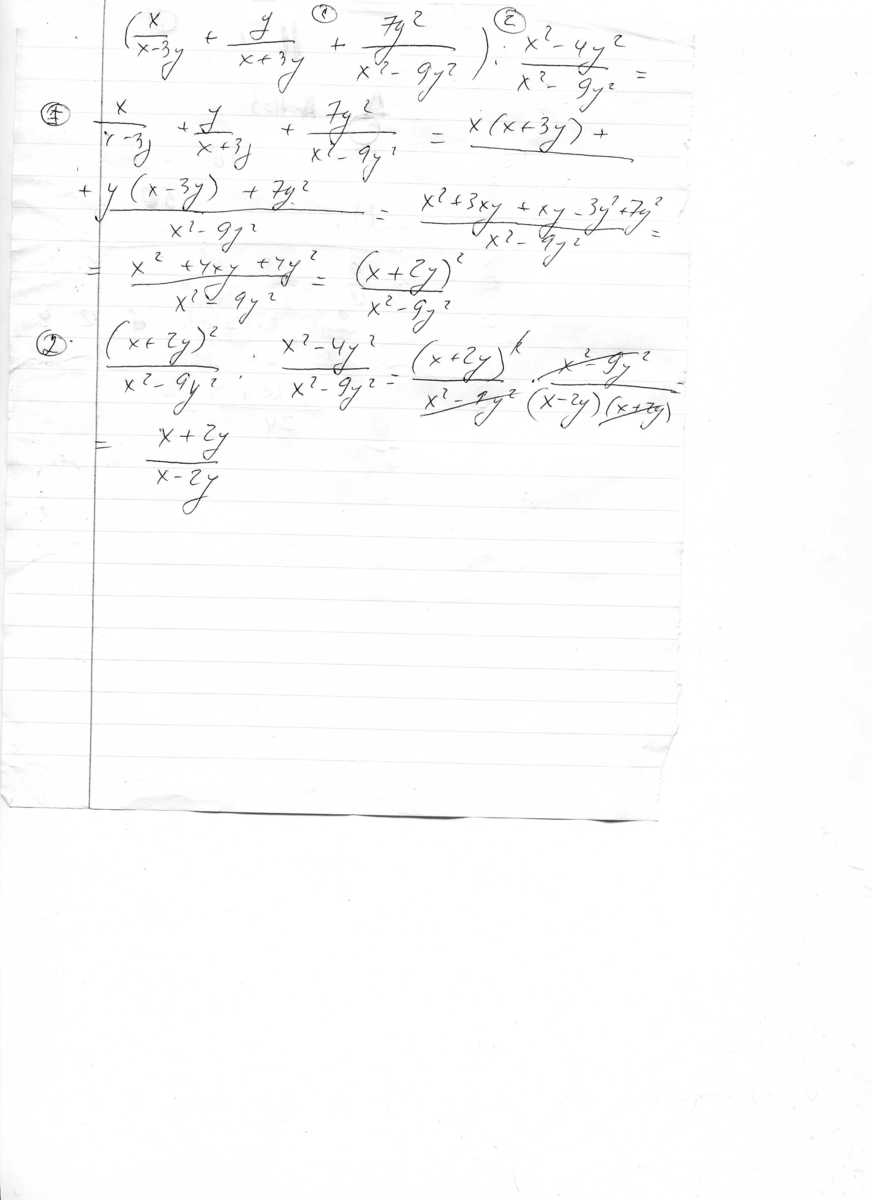 (x/(x-3y) + y/(x+3y) + 7y²/(x²-9y²)) : (x²-4y²)/(x²-9y²) = ① ②
① x/(x-3y) + y/(x+3y) + 7y²/(x²-9y²) = x(x+3y) +
+ y(x-3y) + 7y² / (x²-9y²) = (x²+3xy+xy-3y²+7y²)/(x²-9y²) =
= (x²+4xy+4y²)/(x²-9y²) = (x+2y)²/(x²-9y²)
②. (x+2y)²/(x²-9y²) : (x²-4y²)/(x²-9y²) = (x+2y)²/(x²-9y²) · (x²-9y²)/((x-2y)(x+2y)) =
= (x+2y)/(x-2y)